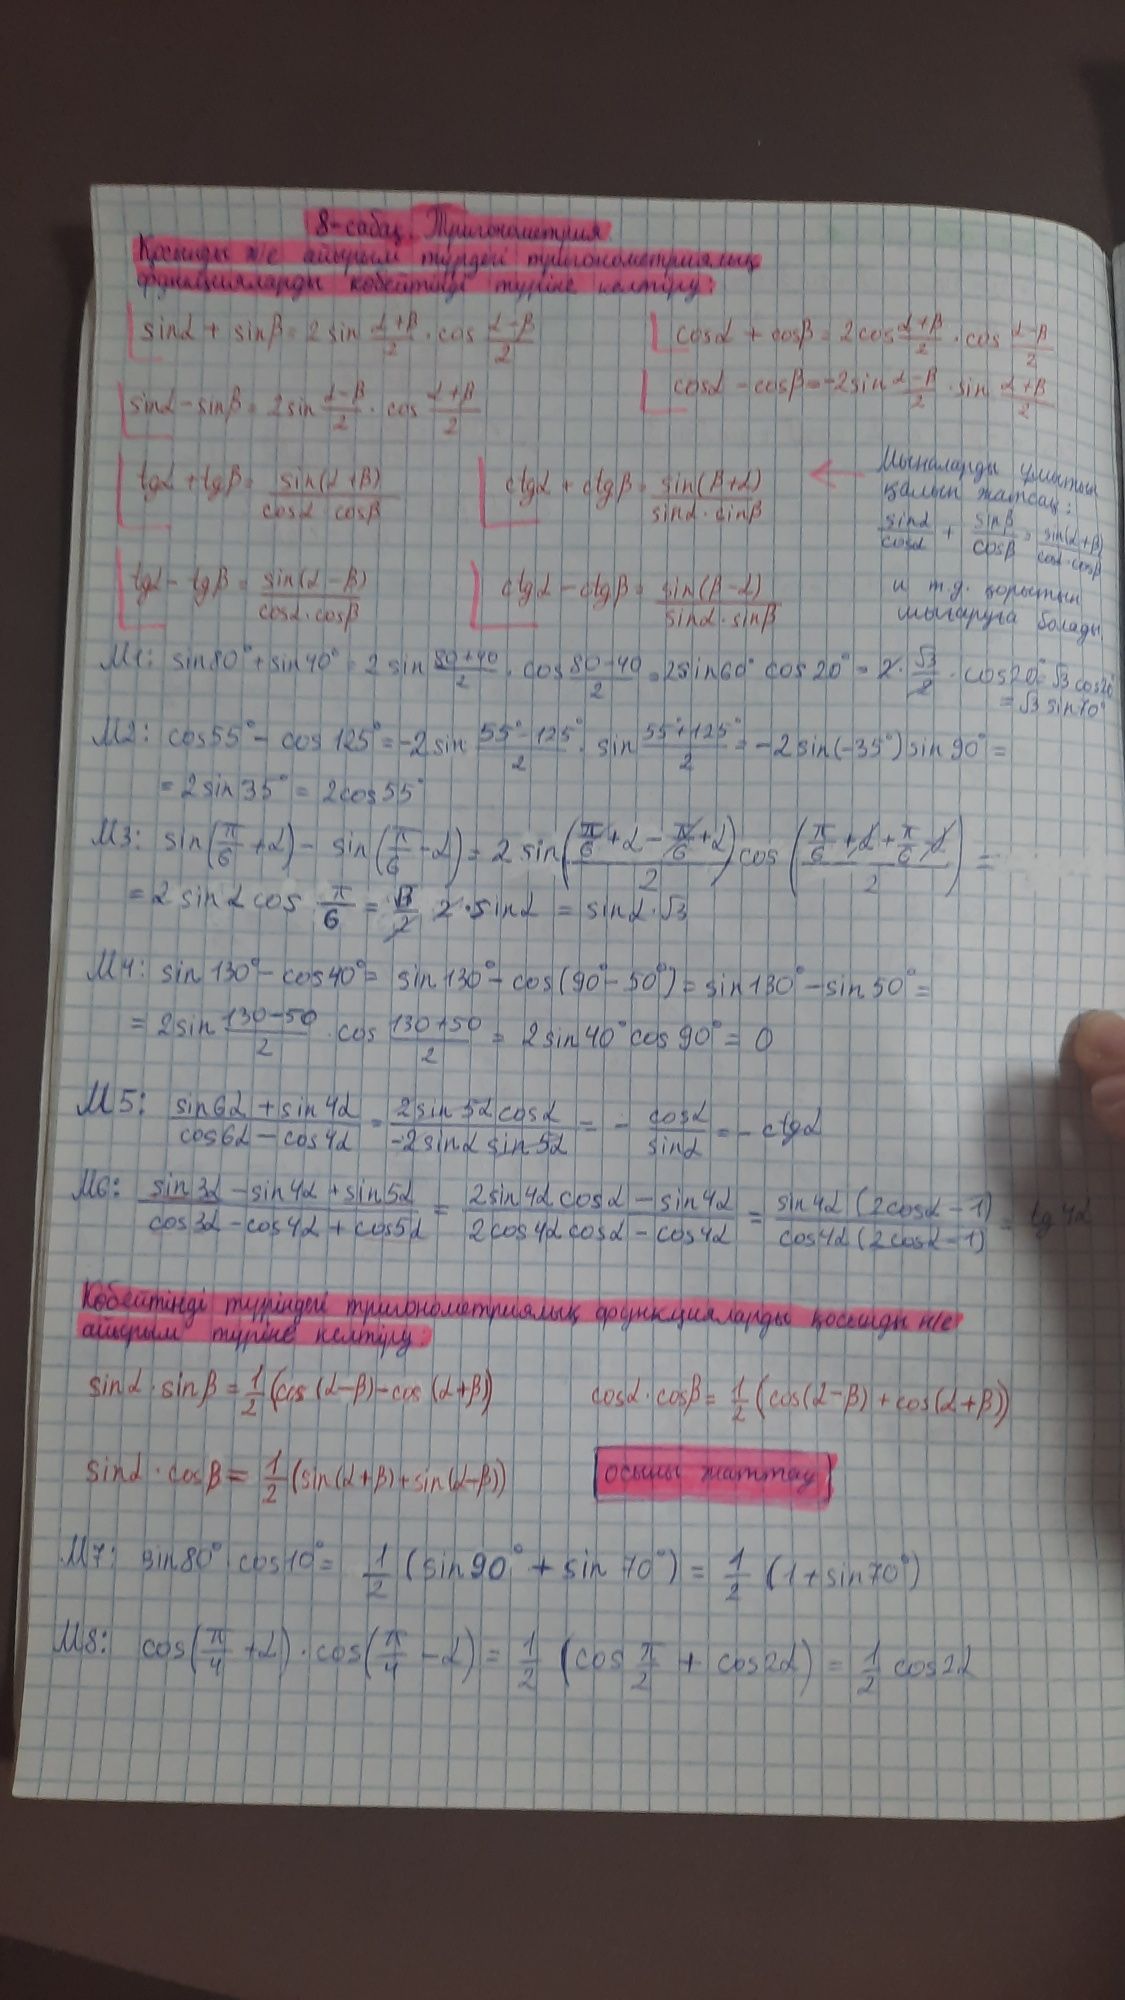 8-сабақ. Тригонометрия
Қосынды ж/е айырым түрдегі тригонометриялық
функцияларды көбейтінді түріне келтіру:
sinα + sinβ = 2 sin (α+β)/2 · cos (α-β)/2
cosα + cosβ = 2cos (α+β)/2 · cos (α-β)/2
sinα - sinβ = 2sin (α-β)/2 · cos (α+β)/2
cosα - cosβ = -2sin (α-β)/2 · sin (α+β)/2
tgα + tgβ = sin(α+β)/(cosα cosβ)
ctgα + ctgβ = sin(β+α)/(sinα · sinβ)
← Мыналарды ұмытып
қалып жатсаң:
sinα/cosα + sinβ/cosβ = sin(α+β)/(cosα·cosβ)
и т.д. қорытып
шығаруға болады
tgα - tgβ = sin(α-β)/(cosα·cosβ)
ctgα - ctgβ = sin(β-α)/(sinα·sinβ)
М1: sin80° + sin40° = 2 sin (80+40)/2 · cos (80-40)/2 = 2sin60° cos20° = 2 · √3/2 · cos20° = √3 cos20°
= √3 sin70°
М2: cos55° - cos125° = -2sin (55°-125°)/2 · sin (55°+125°)/2 = -2sin(-35°) sin90° =
= 2sin35° = 2cos55°
М3: sin(π/6 + α) - sin(π/6 - α) = 2 sin((π/6 + α - π/6 + α)/2) cos((π/6 + α + π/6 - α)/2) =
= 2 sinα cos π/6 = √3/2 · 2 · sinα = sinα·√3
М4: sin130° - cos40° = sin130° - cos(90° - 50°) = sin130° - sin50° =
= 2sin (130-50)/2 · cos (130+50)/2 = 2sin40° cos90° = 0
М5: (sin6α + sin4α)/(cos6α - cos4α) = (2sin5α cosα)/(-2sinα sin5α) = - cosα/sinα = - ctgα
М6: (sin3α - sin4α + sin5α)/(cos3α - cos4α + cos5α) = (2sin4α cosα - sin4α)/(2cos4α cosα - cos4α) = (sin4α (2cosα - 1))/(cos4α (2cosα - 1)) = tg4α
Көбейтінді түріндегі тригонометриялық функцияларды қосынды н/е
айырым түріне келтіру:
sinα · sinβ = 1/2 (cos(α-β) - cos(α+β))
cosα · cosβ = 1/2 (cos(α-β) + cos(α+β))
sinα · cosβ = 1/2 (sin(α+β) + sin(α-β))
осыны жаттау
М7: sin80° cos10° = 1/2 (sin90° + sin70°) = 1/2 (1 + sin70°)
М8: cos(π/4 + α) · cos(π/4 - α) = 1/2 (cos π/2 + cos2α) = 1/2 cos2α